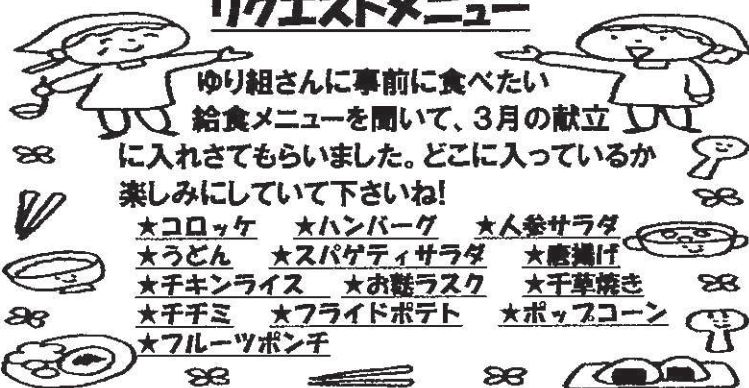 リクエストメニュー
ゆり組さんに事前に食べたい
給食メニューを聞いて、3月の献立
に入れさてもらいました。どこに入っているか
楽しみにしていて下さいね!
★コロッケ ★ハンバーグ ★人参サラダ
★うどん ★スパゲティサラダ ★唐揚げ
★チキンライス ★お麩ラスク ★千草焼き
★チヂミ ★フライドポテト ★ポップコーン
★フルーツポンチ